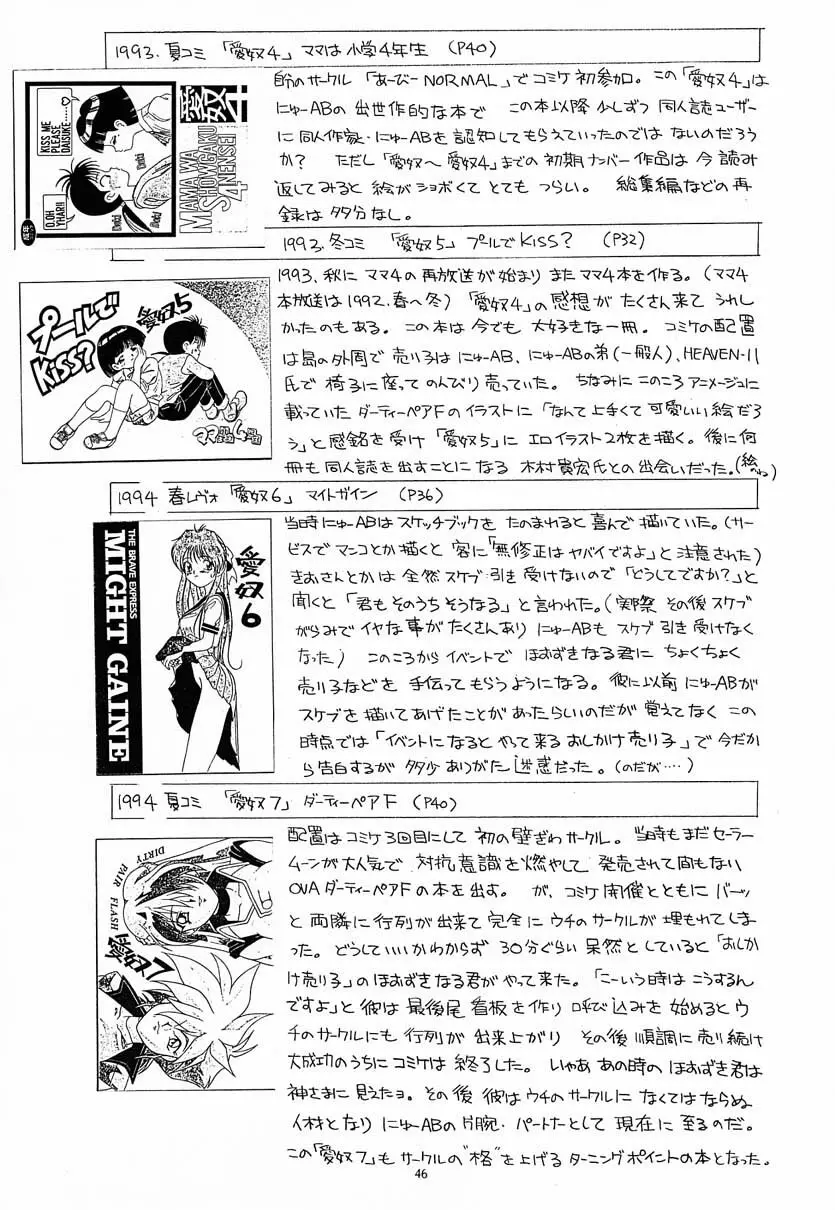 1993. 夏コミ 「愛奴4」 ママは小学4年生 (P40)
KISS ME
PLEASE
DAISUKE……♡
O,OH
愛奴4
MAMA WA
SHOWGAKU
4NENSEI
自分のサークル「あーびーNORMAL」でコミケ初参加。この「愛奴4」は
にゅーABの出世作的な本で この本以降 少しずつ 同人誌ユーザー
に同人作家・にゅーABを認知してもらえていったのでは ないのだろう
か? ただし「愛奴〜愛奴4」までの 初期ナンバー作品は 今 読み
返してみると 絵が ショボくて とても つらい。 総集編などの再
録は 多分なし。
1993. 冬コミ 「愛奴5」 プールでKiss? (P32)
プールで
Kiss?
愛奴5
1993. 秋に ママ4の再放送が始まり また ママ4本を作る。(ママ4
本放送は 1992. 春〜冬) 「愛奴4」の感想が たくさん来て うれし
かったのもある。 この本は 今でも 大好きな一冊。 コミケの配置
は島の外周で 売り子は にゅーAB、にゅーABの弟(一般人)、HEAVEN-11
氏で 椅子に座って のんびり 売っていた。 ちなみに このころ アニメージュに
載っていた ダーティーペアFのイラストに「なんて上手くて可愛いい絵だろ
う」と感銘を受け 「愛奴5」に エロイラスト2枚を描く。後に何
冊も 同人誌を出すことに なる 木村貴宏氏との出会いだった。(絵のね)
1994 春レヴォ 「愛奴6」 マイトガイン (P36)
THE BRAVE EXPRESS
MIGHT GAINE
愛奴6
当時にゅーABはスケッチブックを たのまれると 喜んで 描いていた。(サー
ビスでマンコとか描くと 客に「無修正は ヤバイですよ」と注意された)
きおさんとかは 全然スケブ 引き受けないので「どうしてですか?」と
聞くと「君もそのうちそうなる」と言われた。(実際 その後スケブ
がらみで イヤな事が たくさんあり にゅーABも スケブ引き受けなく
なった) このころから イベントで ほおずきなる君に ちょくちょく
売り子などを 手伝ってもらうようになる。彼に以前 にゅーABが
スケブを描いてあげたことが あったらしいのだが 覚えてなく この
時点では「イベントになると やって来る おしかけ売り子」で 今だか
ら告白するが 多少ありがた迷惑だった。(のだが‥‥)
1994 夏コミ 「愛奴7」 ダーティーペアF (P40)
DIRTY
PAIR
FLASH
愛奴7
配置は コミケ3回目にして 初の壁ぎわサークル。当時もまだ セーラー
ムーンが大人気で 対抗意識を燃やして 発売されて間もない
OVAダーティーペアFの本を出す。 が、コミケ開催とともに バーッ
と両隣に行列が出来て 完全に ウチのサークルが 埋もれてしま
った。どうしていいかわからず 30分ぐらい 呆然としていると「おしか
け売り子」の ほおずきなる君が やって来た。「こーいう時は こうするん
ですよ」と 彼は 最後尾 看板を作り 呼び込みを 始めると ウ
チのサークルにも 行列が 出来上がり その後 順調に売り続け
大成功のうちに コミケは 終了した。いゃあ あの時の ほおずき君は
神さまに 見えたョ。その後 彼は ウチのサークルに なくてはならぬ
人材となり にゅーABの片腕・パートナーとして 現在に 至るのだ。
この「愛奴7」も サークルの“格”を上げる ターニングポイントの本となった。
46